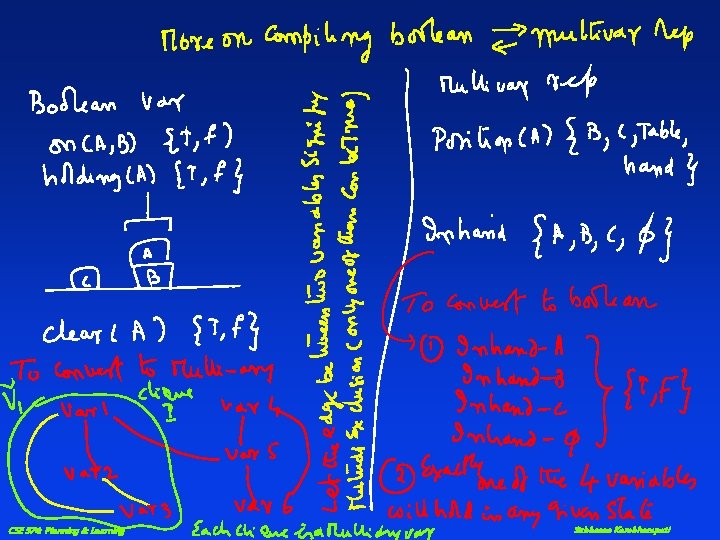 More on Compiling boolean ⇄ multivar rep
Boolean var
on(A,B) {T,f)
holding(A) {T,f}
A
C B
clear(A) {T,f}
To convert to Multi-ary
V1
clique
var1
var4
var5
var2
var3
var6
Each clique is a Multiary var
Let the edge between two variables signify
Mutual Exclusion (only one of them can be True)
Multivar rep
Position(A) {B,C,Table,
hand}
Inhand {A,B,C,ϕ}
To convert to boolean
① Inhand-A
Inhand-B
Inhand-C
Inhand-ϕ
{T,F}
② Exactly one of the 4 variables
will hold in any given state
CSE 574: Planning & Learning
Subbarao Kambhampati